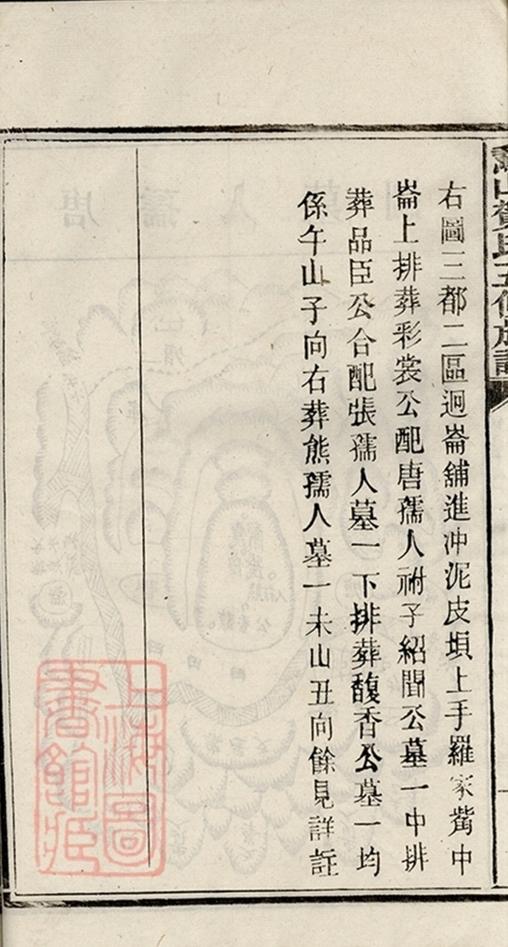 右圖三都二區迥崙舖進冲泥皮塤上手羅家嘴中
崙上排葬彩裳公配唐孺人祔子紹聞公墓一中排
葬品臣公合配張孺人墓一下排葬馥香公墓一均
係午山子向右葬熊孺人墓一未山丑向餘見詳註
上海圖
書館藏